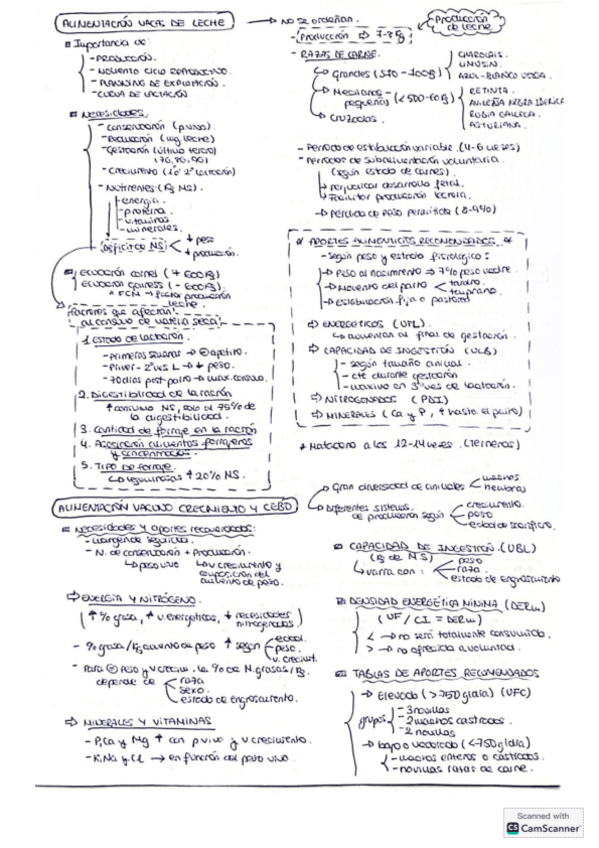 ALIMENTACIÓN VACAS DE LECHE
Importancia de:
- PRODUCCIÓN.
- MOMENTO CICLO REPRODUCTIVO.
- PLANNING DE EXPLOTACIÓN.
- CURVA DE LACTACIÓN
Necesidades
- Conservación (p.vivo).
- Producción (kg leche)
- Gestación (último tercio)
- Crecimiento (1ª 2ª lactación)
- Nutrientes (Kg MS).
- energía
- proteína
- vitaminas
- minerales.
Déficit de MS
↓ peso
↓ producción.
Ecuación cornel (+ 600kg)
Ecuación (- 600kg)
* FCM → factor producción leche.
Factores que afectan
al consumo de materia seca:
1. Estado de lactación.
- Primeras semanas → ⊖ apetito.
- Primer - 2º mes L → ↓ peso.
- 70 días post parto → max. consumo.
2. Digestibilidad de la ración
↑ consumo MS, solo al 75% de
la digestibilidad.
3. Cantidad de forraje en la ración
4. Asociación alimentos forrajeros
y concentrados.
5. Tipo de forraje.
↳ leguminosas ↑ 20% MS.
→ NO SE ORDEÑAN.
Producción de leche
- Producción ⇨ 7-8 Kg
- RAZAS DE CARNE.
↳ Grandes
CHAROLAIS
LIMUSIN.
AZUL-BLANCO
↳ Medianas - pequeñas
RETINTA.
AVILEÑA NEGRA IBÉRICA
RUBIA GALLEGA.
ASTURIANA.
↳ Cruzadas.
- Periodo de estabulación variable. (4-6 meses)
- Periodos de subalimentación voluntaria.
(según estado de carnes)
↳ perjudicar desarrollo fetal.
↳ Facilitar producción lechera.
→ Pérdida de peso permitida (8-9%)
* APORTES ALIMENTICIOS RECOMENDADOS *
- según peso y estado fisiológico:
→ Peso al nacimiento → 7% peso madre.
→ Momento del parto
tardío.
temprano.
→ estabulación fija o pastoreo.
⇨ ENERGÉTICOS (UFL)
↳ aumentan al final de gestación.
⇨ CAPACIDAD DE INGESTIÓN (ULB)
- según tamaño animal.
- cte durante gestación
- máximo en 3er mes de lactación.
⇨ NITROGENADOS (PDI)
⇨ MINERALES (Ca y P, ↑ hasta el parto)
* Matadero a los 12-14 meses. (Terneros)
ALIMENTACIÓN VACUNO CRECIMIENTO Y CEBO
Necesidades y aportes recomendados:
- margen de seguridad.
- N. de conservación + producción.
↳ peso vivo
↳ v crecimiento y composición del aumento de peso.
⇨ ENERGÍA Y NITRÓGENO.
(↑ % grasa, ↑ v. energéticos, ↓ necesidades nitrogenadas)
- % grasa / kg aumento de peso ↑ según
edad.
peso.
v. crecimt.
- Para ⊖ peso y v crecim. la % de N. grasas/kg
depende de
raza
sexo.
estado de engrasamiento.
⇨ MINERALES Y VITAMINAS
- P, Ca y Mg ↑ con p vivo y v crecimiento.
- K, Na y Cl → en función del peso vivo.
Gran diversidad de animales
machos
hembras
Diferentes sistemas de producción según
crecimiento.
peso
edad de sacrificio.
CAPACIDAD DE INGESTIÓN. (UBL)
(Kg de MS)
↳ varía con:
peso
raza.
estado de engrasamiento
DENSIDAD ENERGÉTICA MÍNIMA (DERm)
(UF / CI = DERm)
< → no será totalmente consumida.
> → no ofrecida a voluntad.
TABLAS DE APORTES RECOMENDADOS
→ Elevado (> 750 g/día) (UFC)
grupos
- 3 novillas
- 2 machos castrados.
- 2 novillas
→ bajo o moderado (<750 g/día)
- machos enteros o castrados.
- novillas razas de carne.
Scanned with
CS CamScanner